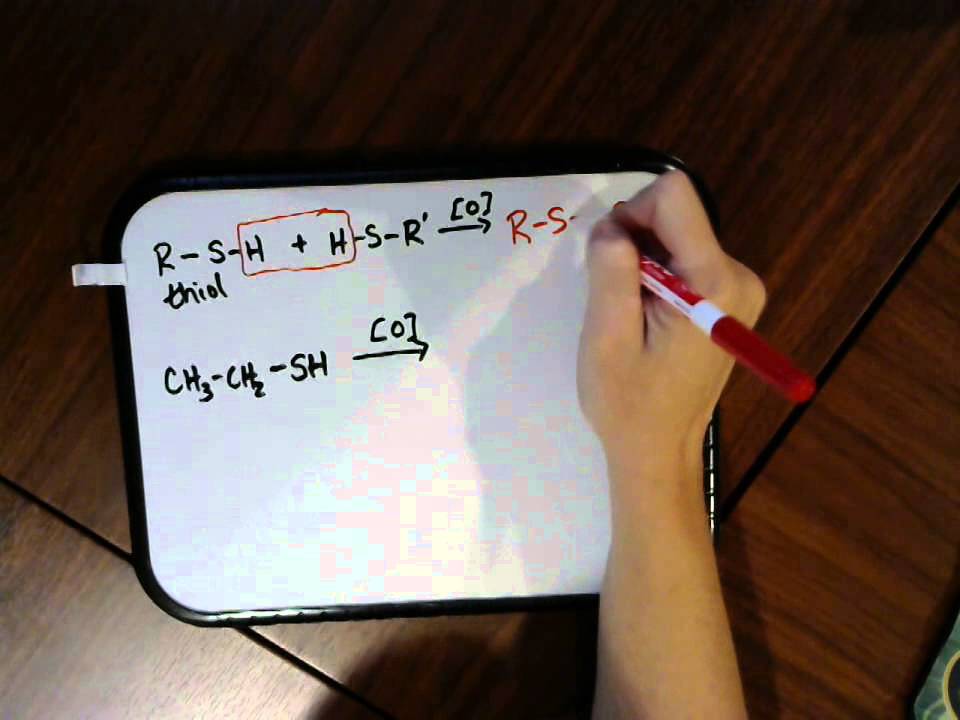 R-S-H + H-S-R' [O] → R-S-
thiol
CH₃-CH₂-SH [O] →